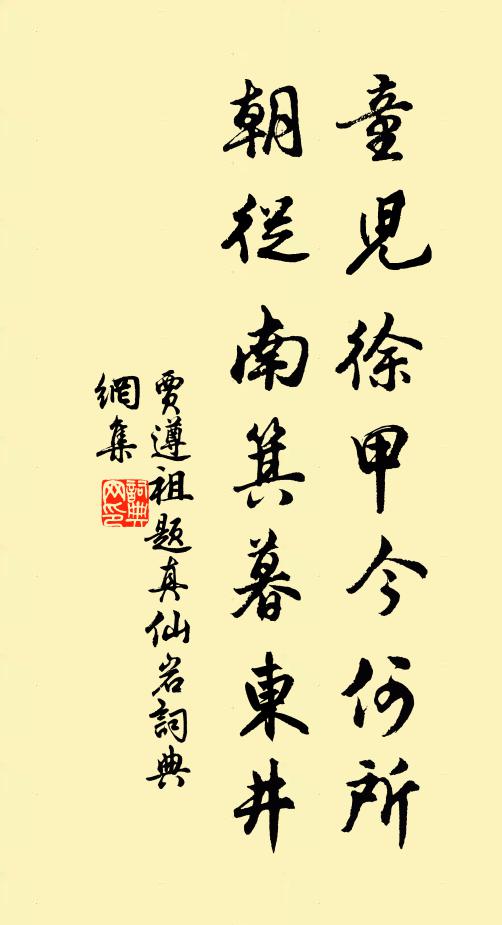 童兒徐甲今何所
朝從南箕暮東井
賈遵祖題真仙岩詞典
網集
詞典網印